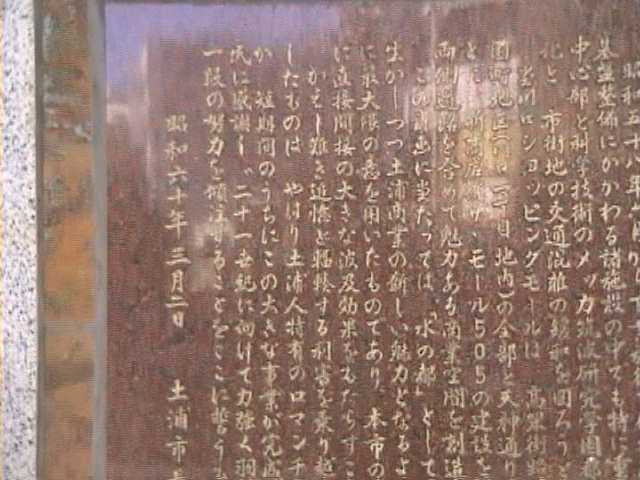 昭和五十八年
基盤整備にかかわる諸施設の中でも特に重
中心部と科学技術のメッカ筑波研究学園都
化と、市街地の交通混雑の緩和を図ろうと
川口ショッピングモールは、高架街路
園町地区(一、二丁目地内)の全部と天神通り
モール505の建設を
両側道路を含めて魅力ある商業空間を創造
この計画に当たっては、「水の都」として
生かしつつ土浦商業の新しい魅力となるよ
に最大限の意を用いたものであり、本市の
に直接間接の大きな波及効果をもたらすこ
かえし難き追憶と輻輳する利害を乗り越
したものは、やはり土浦人特有のロマンチ
か、短期間のうちにこの大きな事業が完成
民に感謝し、二十一世紀に向けて力強く羽
一段の努力を傾注することをここに誓う
昭和六十年三月二日
土浦市長